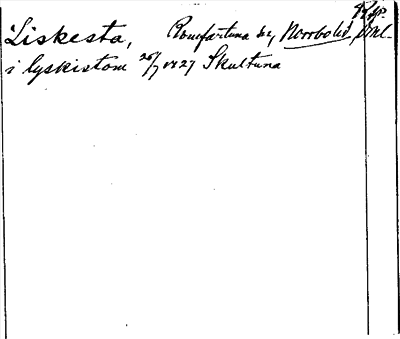 Liskesta, Romfartuna sn, Norrbo hd, Vml.
i lyskistom 26/7 1427 Skultuna